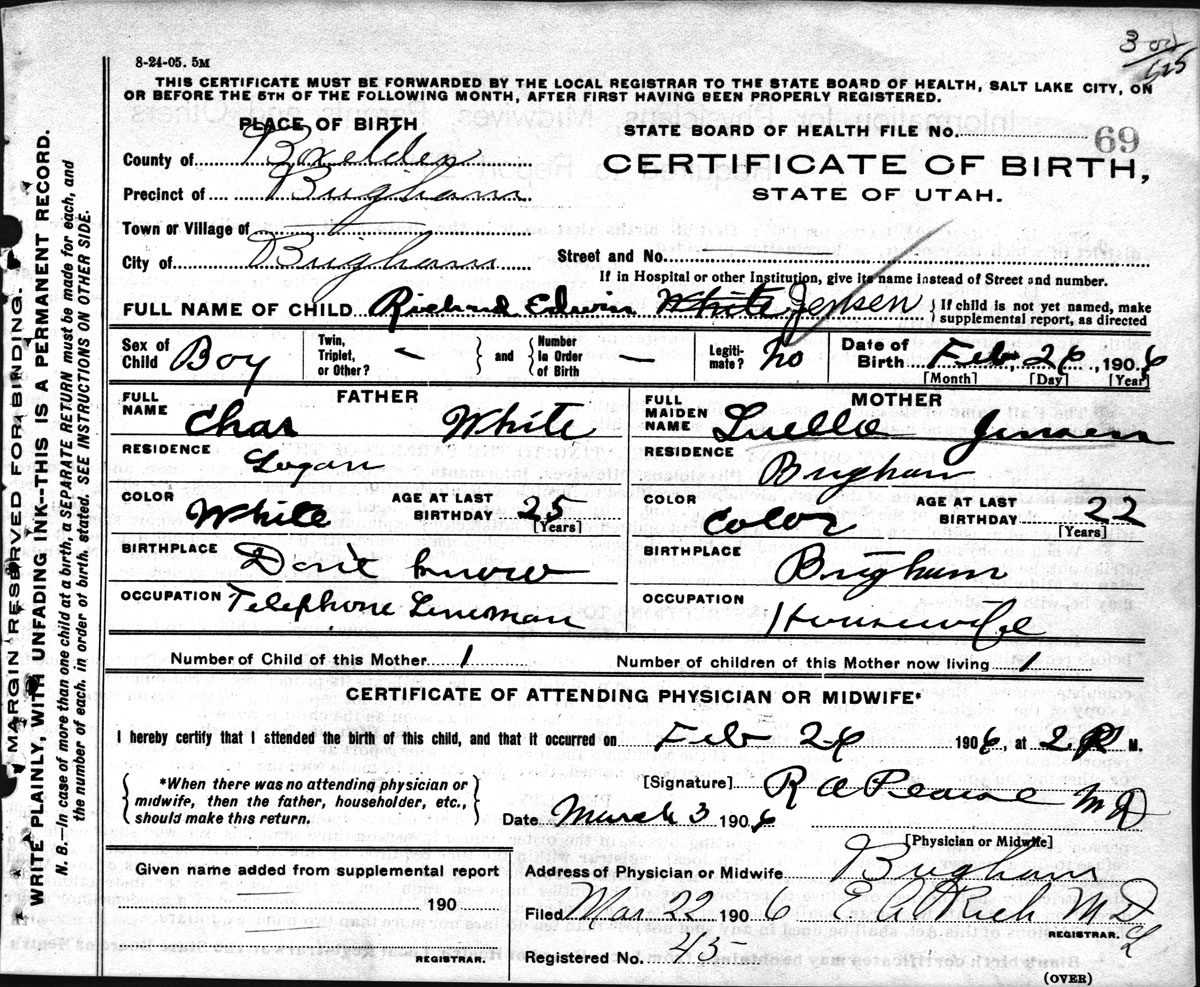 8-24-05. 5M
THIS CERTIFICATE MUST BE FORWARDED BY THE LOCAL REGISTRAR TO THE STATE BOARD OF HEALTH, SALT LAKE CITY, ON
OR BEFORE THE 5TH OF THE FOLLOWING MONTH, AFTER FIRST HAVING BEEN PROPERLY REGISTERED.
PLACE OF BIRTH
STATE BOARD OF HEALTH FILE No. 69
County of Boxelder
CERTIFICATE OF BIRTH,
Precinct of Brigham
STATE OF UTAH.
Town or Village of
City of Brigham
Street and No.
If in Hospital or other Institution, give its name instead of Street and number.
FULL NAME OF CHILD Richard Edwin White Jensen
If child is not yet named, make
supplemental report, as directed
Sex of Child Boy
Twin, Triplet, or Other? —
and
Number in Order of Birth —
Legiti-mate? No
Date of Birth Feb. 26, 1906
[Month] [Day] [Year]
FATHER
FULL NAME Chas White
RESIDENCE Logan
COLOR White
AGE AT LAST BIRTHDAY 25
[Years]
BIRTHPLACE Don't know
OCCUPATION Telephone Lineman
MOTHER
FULL MAIDEN NAME Luella Jensen
RESIDENCE Brigham
COLOR Color
AGE AT LAST BIRTHDAY 22
[Years]
BIRTHPLACE Brigham
OCCUPATION Housewife
Number of Child of this Mother 1
Number of children of this Mother now living 1
CERTIFICATE OF ATTENDING PHYSICIAN OR MIDWIFE*
I hereby certify that I attended the birth of this child, and that it occurred on Feb 26 1906, at 2 P M.
*When there was no attending physician or
midwife, then the father, householder, etc.,
should make this return.
[Signature] R A Pearse MD
Date March 3 1906
[Physician or Midwife]
Given name added from supplemental report
190
REGISTRAR.
Address of Physician or Midwife Brigham
Filed Mar 22 1906 E A Rich MD
REGISTRAR.
Registered No. 45
(OVER)
MARGIN RESERVED FOR BINDING.
WRITE PLAINLY, WITH UNFADING INK--THIS IS A PERMANENT RECORD.
N. B.—In case of more than one child at a birth, a SEPARATE RETURN must be made for each, and
the number of each, in order of birth, stated. SEE INSTRUCTIONS ON OTHER SIDE.